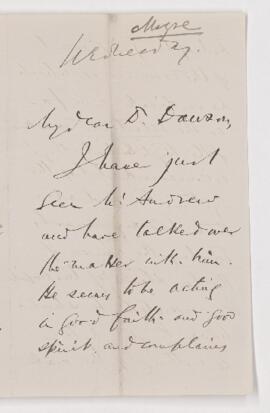 Wednesday.
My dear Dr. Dawson,
I have just
seen Mr Andrew
and have talked over
the matter with him.
He seems to be acting
in good faith and good
spirit, and complains